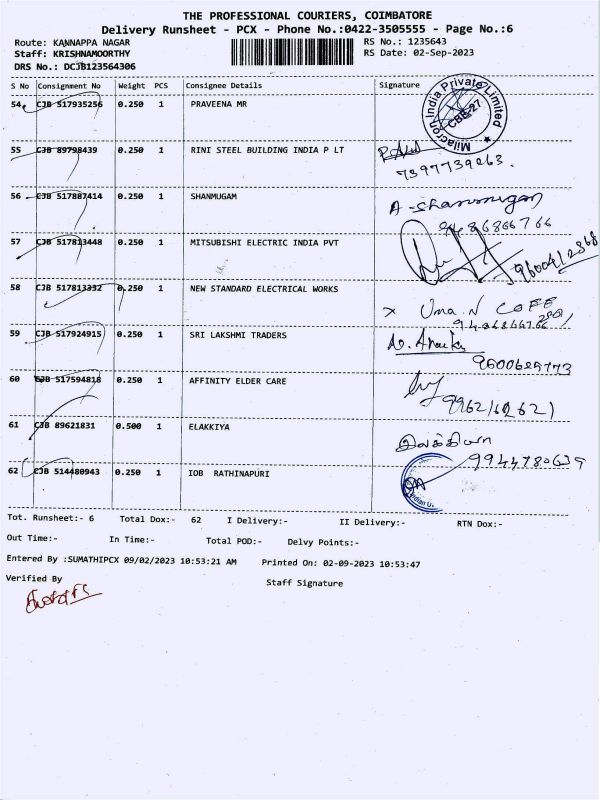 THE PROFESSIONAL COURIERS, COIMBATORE
Delivery Runsheet - PCX - Phone No.:0422-3505555 - Page No.:6
Route: KANNAPPA NAGAR RS No.: 1235643
Staff: KRISHNAMOORTHY RS Date: 02-Sep-2023
DRS No.: DCJB123564306
S No Consignment No Weight PCS Consignee Details Signature
54 CJB 517935256 0.250 1 PRAVEENA MR
Milacron India Private Limited
CBE-27
55 CJB 89798439 0.250 1 RINI STEEL BUILDING INDIA P LT
7397739263.
56 CJB 517887414 0.250 1 SHANMUGAM A -Shanmugam
9486866766
57 CJB 517813448 0.250 1 MITSUBISHI ELECTRIC INDIA PVT
9600412868
58 CJB 517813332 0.250 1 NEW STANDARD ELECTRICAL WORKS x Uma.N
59 CJB 517924915 0.250 1 SRI LAKSHMI TRADERS
9600625773
60 CJB 517594818 0.250 1 AFFINITY ELDER CARE
9962162621
61 CJB 89621831 0.500 1 ELAKKIYA இலக்கியா
9944780639
62 CJB 514480943 0.250 1 IOB RATHINAPURI
Tot. Runsheet:- 6 Total Dox:- 62 I Delivery:- II Delivery:- RTN Dox:-
Out Time:- In Time:- Total POD:- Delvy Points:-
Entered By :SUMATHIPCX 09/02/2023 10:53:21 AM Printed On: 02-09-2023 10:53:47
Verified By Staff Signature